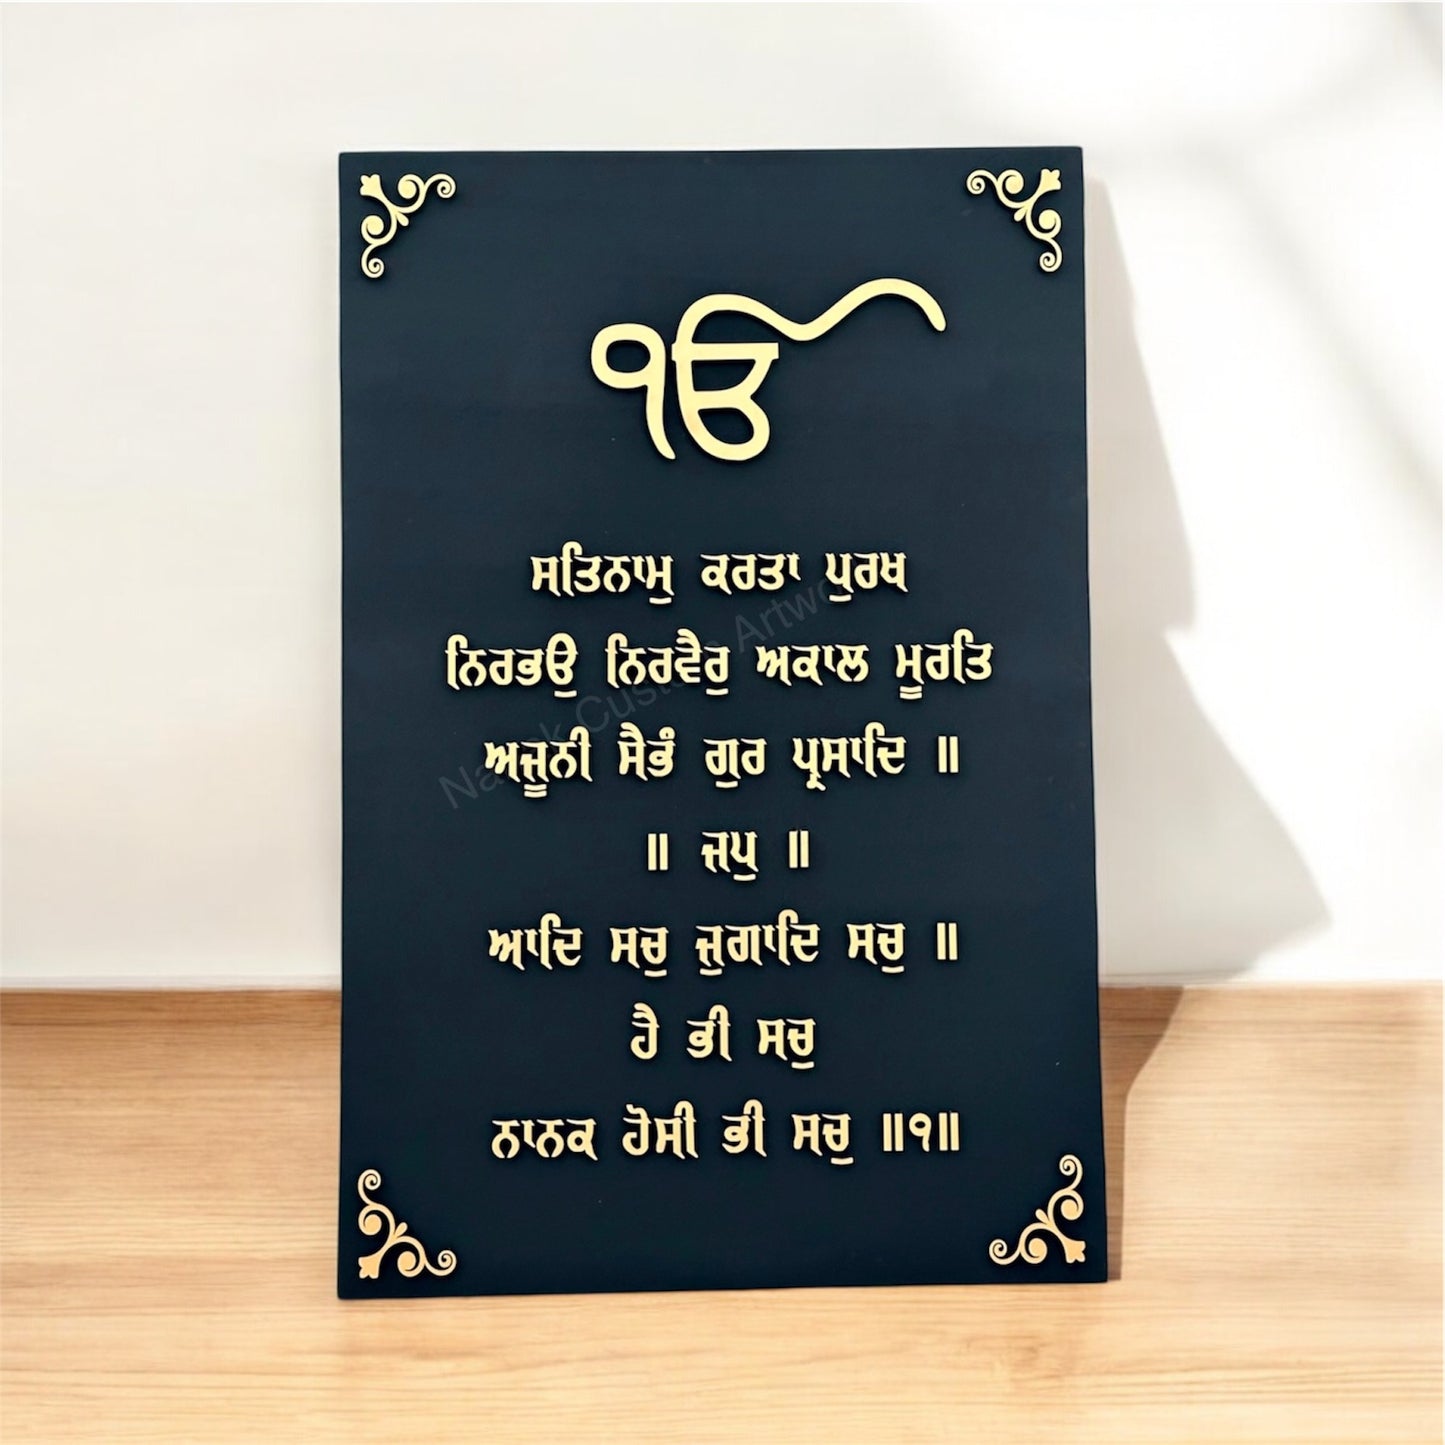 ੴ
ਸਤਿਨਾਮੁ ਕਰਤਾ ਪੁਰਖ
ਨਿਰਭਉ ਨਿਰਵੈਰੁ ਅਕਾਲ ਮੂਰਤਿ
ਅਜੂਨੀ ਸੈਭੰ ਗੁਰ ਪ੍ਰਸਾਦਿ ॥
॥ ਜਪੁ ॥
ਆਦਿ ਸਚੁ ਜੁਗਾਦਿ ਸਚੁ ॥
ਹੈ ਭੀ ਸਚੁ
ਨਾਨਕ ਹੋਸੀ ਭੀ ਸਚੁ ॥੧॥